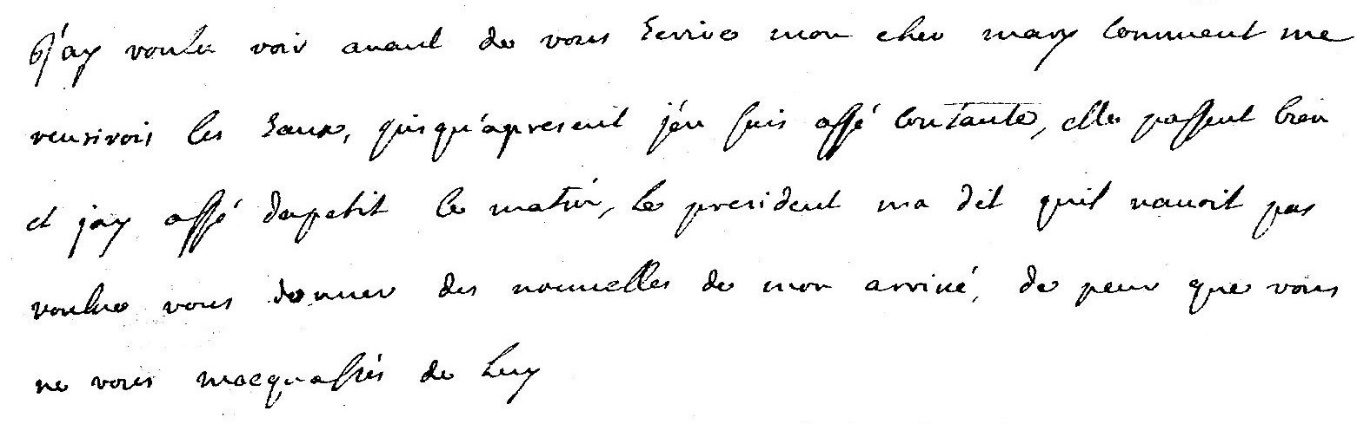 j'ay voulu voir avant de vous Ecrire mon cher mary comment me
reusirois les Eaux, jusqu'apresent j'en suis assé contante, elle passent bien
et jay assé dapetit le matin, le president ma dit quil navoit pas
voulue vous donner des nouvelles de mon arrivé, de peur que vous
ne vous mocquassiés de luy